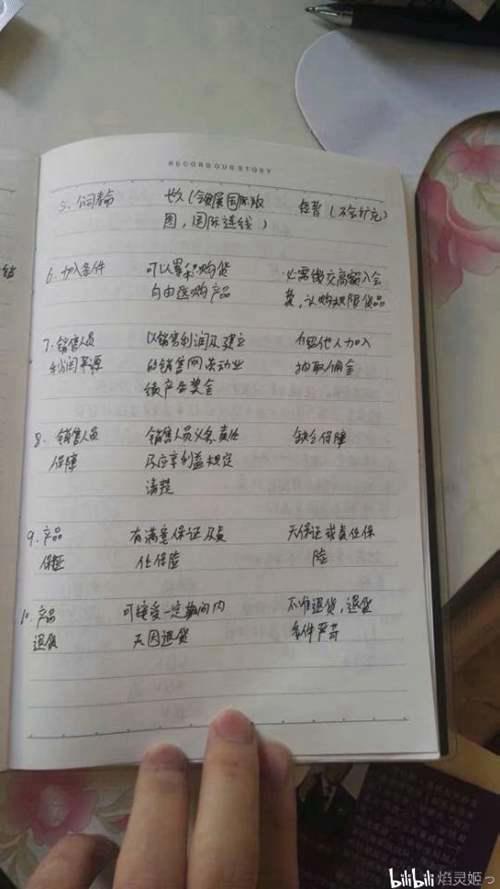 RECORD OUR STORY
5. 公司寿命 地久(会发展国际版 短暂(不会扩充)
图,国际连线)
6. 加入条件 可以累积购货 必需缴交高额入会
自由选购产品 费,认购规限货品
7. 销售人员 以销售利润及建立 介绍他人加入
利润来源 的销售网劳动业 抽取佣金
绩产生奖金
8. 销售人员 销售人员义务责任 缺乏保障
保障 及应享利益规定
清楚
9. 产品 有满意保证及责 无保证或责任保
保证 任保险 险
10. 产品 可接受一定期间内 不准退货,退货
退货 无因退货 条件严苛
bilibili 焰灵姬っ